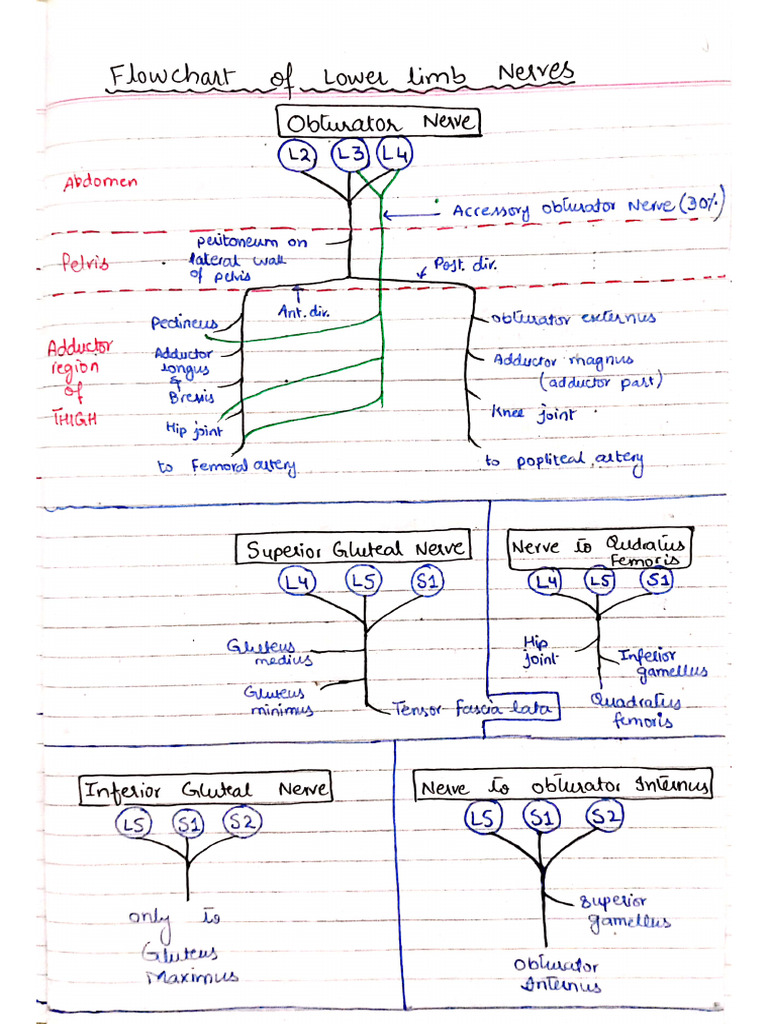 Flowchart of Lower limb Nerves
Obturator Nerve
L2 L3 L4
Abdomen
Accessory Obturator Nerve (30%)
Pelvis
peritoneum on
lateral wall
of pelvis
Post. dir.
Ant. dir.
Adductor
region
of
THIGH
Pectineus
Adductor
longus
&
Brevis
Hip joint
to Femoral artery
Obturator externus
Adductor magnus
(adductor part)
Knee joint
to popliteal artery
Superior Gluteal Nerve
L4 L5 S1
Gluteus
medius
Gluteus
minimus
Tensor fascia lata
Nerve to Qudratus
Femoris
L4 L5 S1
Hip
joint
Inferior
gamellus
Quadratus
femoris
Inferior Gluteal Nerve
L5 S1 S2
only to
Gluteus
Maximus
Nerve to obturator Internus
L5 S1 S2
Superior
gamellus
Obturator
Internus